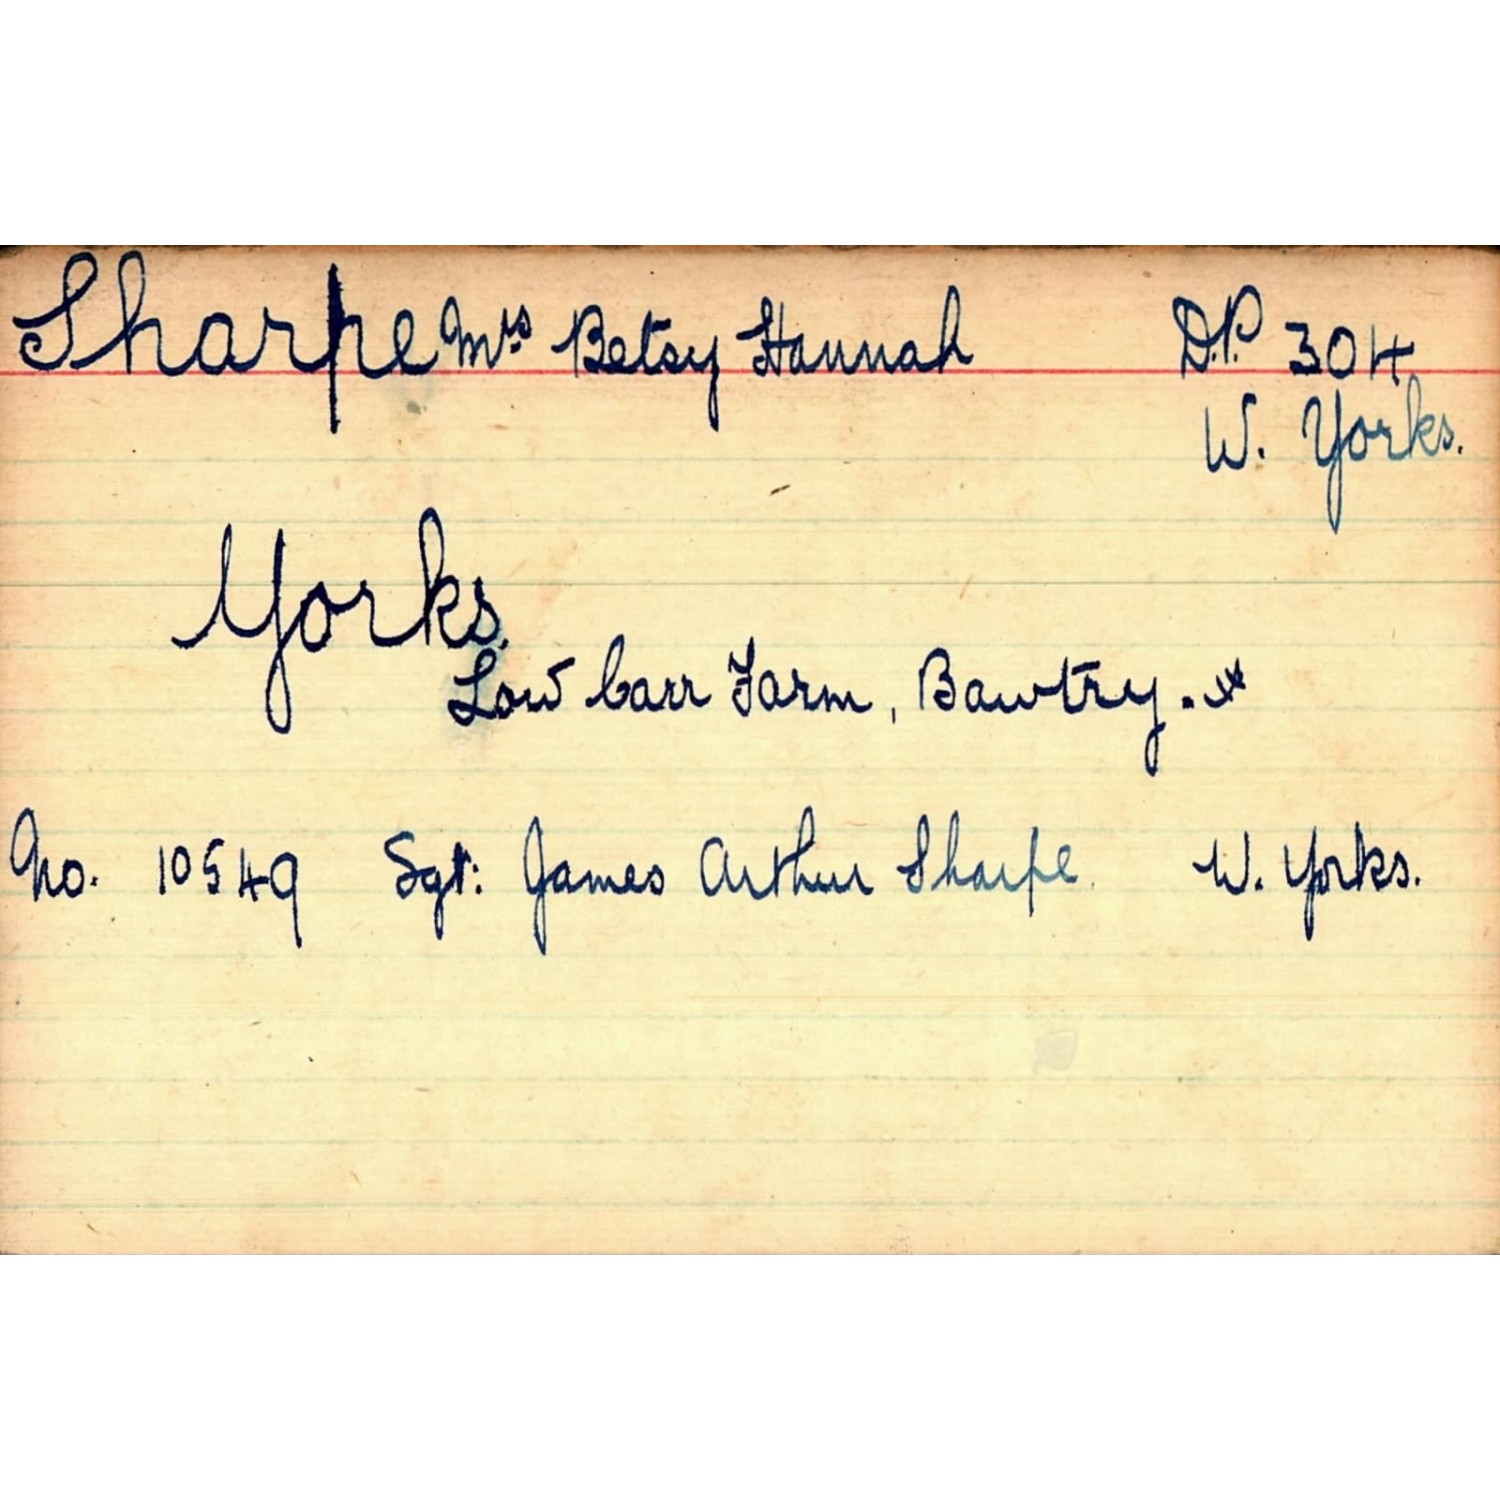 Sharpe Mrs Betsy Hannah D.P. 304
W. Yorks.
Yorks.
Low Carr Farm, Bawtry.
No. 10549 Sgt: James Arthur Sharpe W. Yorks.